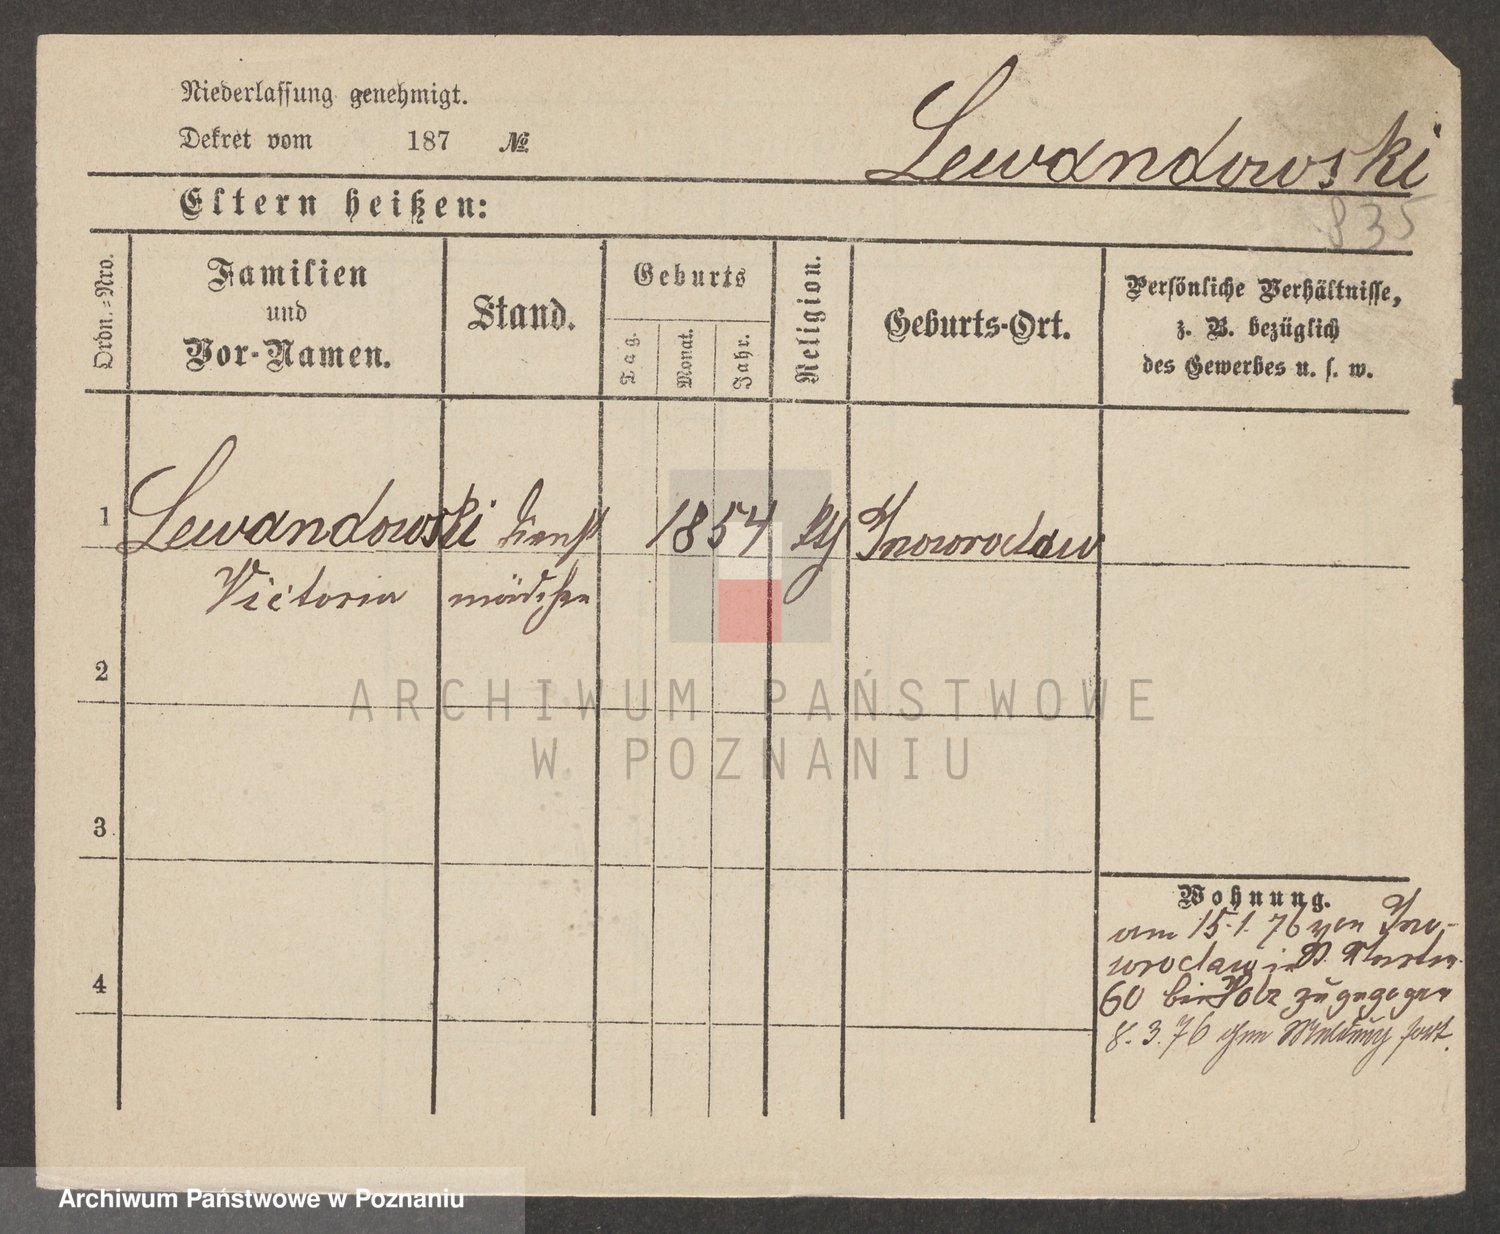 Niederlassung genehmigt.
Dekret vom 187 №
Lewandowski
835
Eltern heißen:
Ordn.-Nro.
Familien
und
Vor-Namen.
Stand.
Geburts
Tag.
Monat.
Jahr.
Religion.
Geburts-Ort.
Persönliche Verhältnisse,
z. B. bezüglich
des Gewerbes u. s. w.
1 Lewandowski Dienst 1854 Inowroclaw
Victoria mädchen
2
ARCHIWUM PAŃSTWOWE
W POZNANIU
3
Wohnung.
am 15.1.76 von Ino-
wroclaw in St. Martin
60 bei zugegogen
8.3.76 ohne Meldung fort.
4
Archiwum Państwowe w Poznaniu